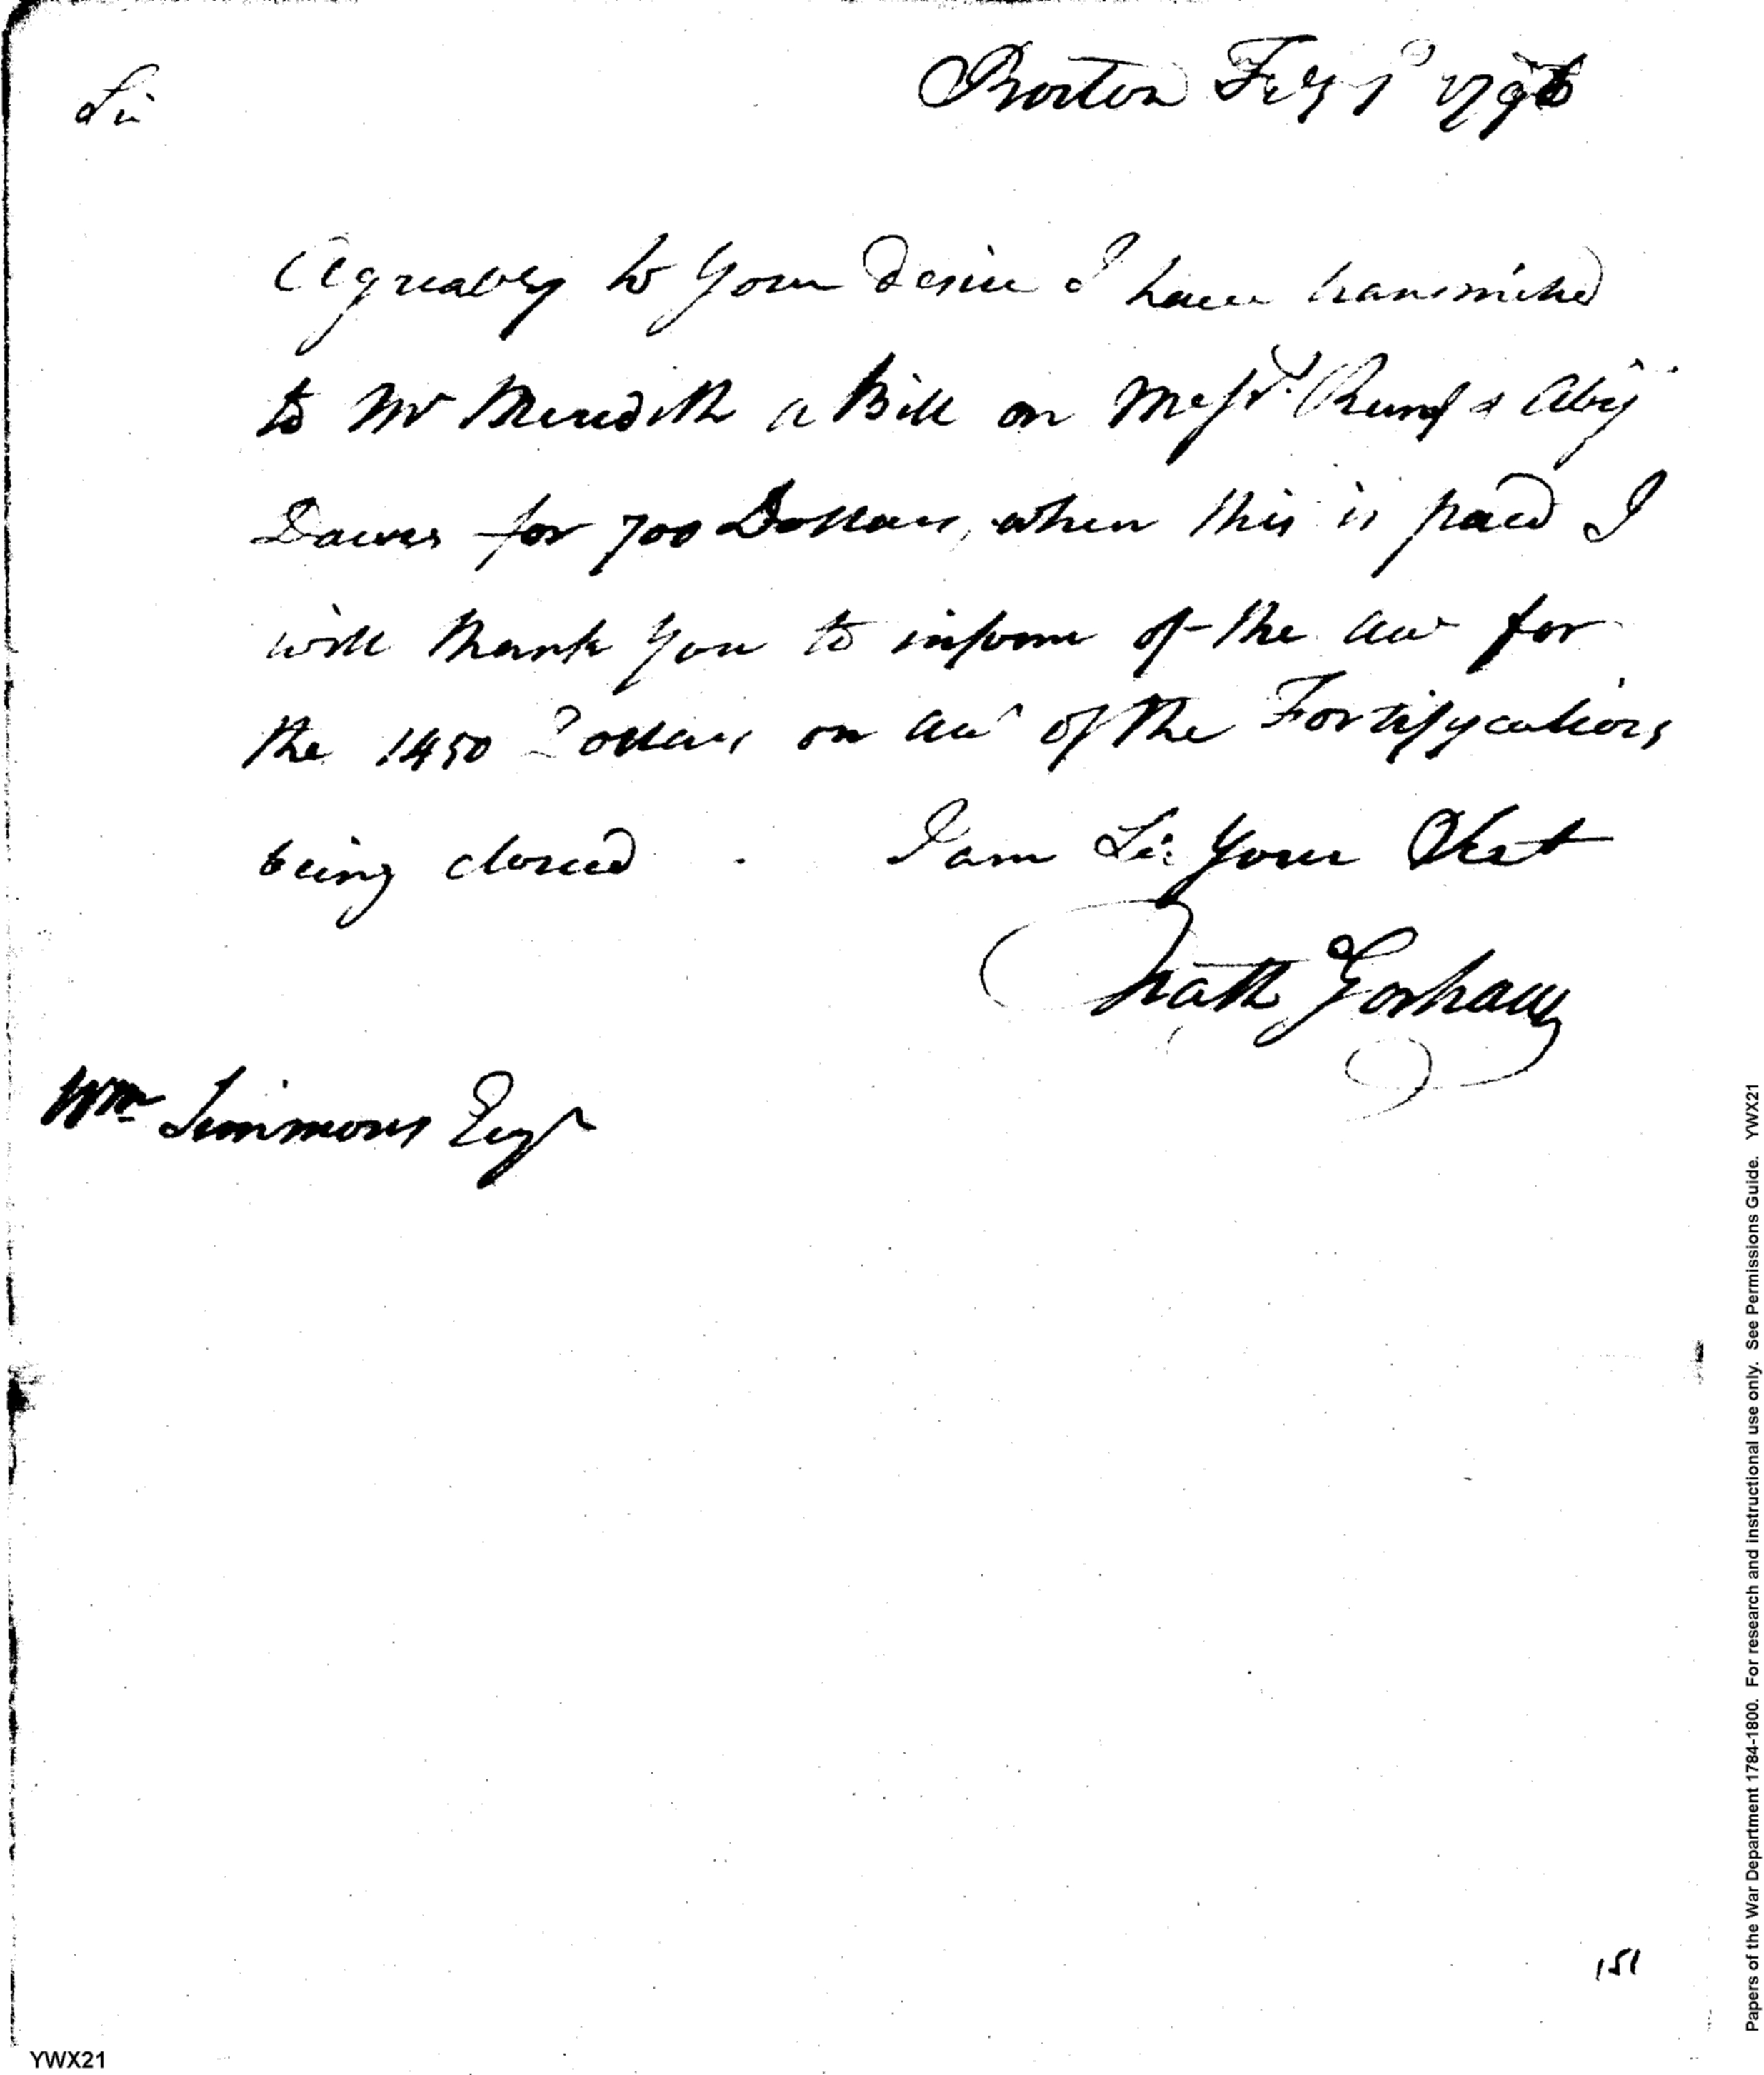 Boston Feby 1st 1796
Sir
Agreably to Your Desire I have transmited
to Mr Meredith a Bill on Messrs. & Abij
Dawes for 700 Dollars, when this is paid I
will thank You to inform of the acct for
the 1450 Dollars on acct of the Fortifycations
being closed . I am Sir Your Obet
Nath Gorham
Wm Simmons Esqr
151
YWX21
Papers of the War Department 1784-1800. For research and instructional use only. See Permissions Guide. YWX21